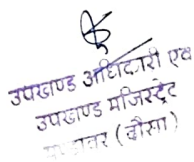 उपखण्ड अधिकारी एवं
उपखण्ड मजिस्ट्रेट
(दौसा)